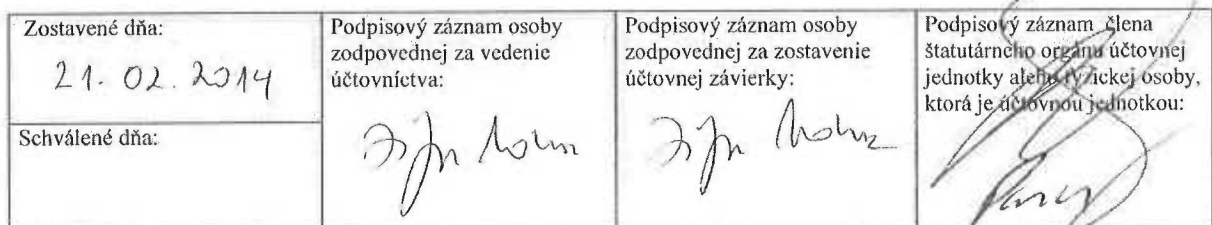 Zostavené dňa:
21. 02. 2014
Schválené dňa:
Podpisový záznam osoby
zodpovednej za vedenie
účtovníctva:
Podpisový záznam osoby
zodpovednej za zostavenie
účtovnej závierky:
Podpisový záznam člena
štatutárneho orgánu účtovnej
jednotky alebo fyzickej osoby,
ktorá je účtovnou jednotkou: